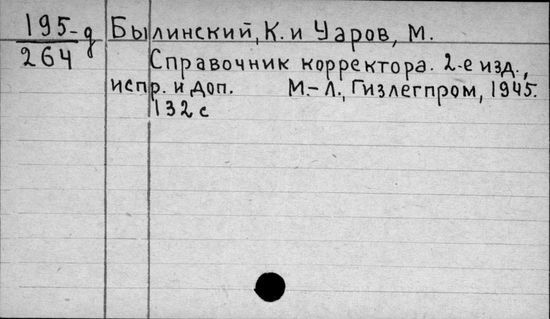 195-д Былинский, К. и Уаров, М.
264 Справочник корректора. 2-е изд.,
испр. и доп. М.-Л., Гизлегпром, 1945.
132 с